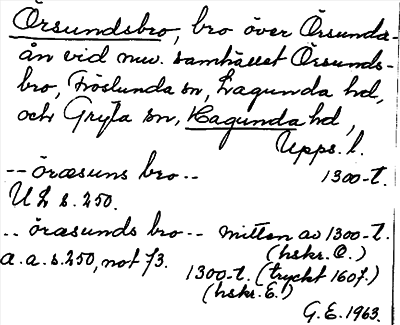 Örsundsbro, bro över Örsunda-
ån vid nuv. samhället Örsunds-
bro, Fröslunda sn, Lagunda hd,
och Gryta sn, Hagunda hd,
Upps. l.
-- öræsuns bro -- 1300-t.
UL s. 250.
-- öræsunds bro -- mitten av 1300-t.
(hskr. C.)
a.a. s. 250, not 73. 1300-t. (tryckt 1607.)
(hskr. E.)
G.E. 1963.